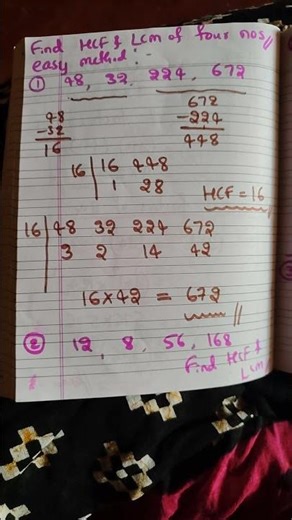 Find HCF & LCM of four nos//
easy method :-
① 48, 32, 224, 672
48
-32
16
672
-224
448
16 | 16 448
1 28
HCF = 16
16 | 48 32 224 672
3 2 14 42
16 × 42 = 672 //
② 12, 8, 56, 168
Find HCF &
LCM